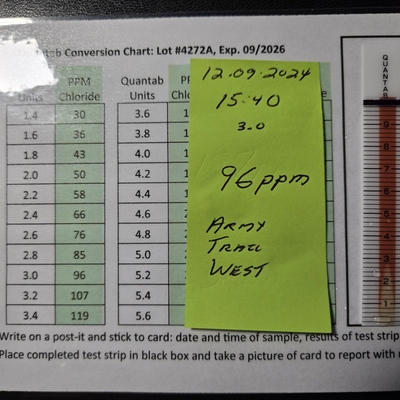 tab Conversion Chart: Lot #4272A, Exp. 09/2026
Units PPM Chloride
1.4 30
1.6 36
1.8 43
2.0 50
2.2 58
2.4 66
2.6 76
2.8 85
3.0 96
3.2 107
3.4 119
Quantab Units
3.6 1
3.8 1
4.0 1
4.2 1
4.4 1
4.6 2
4.8 2
5.0 2
5.2 2
5.4
5.6
12.09.2024
15:40
3.0
96ppm
ARMY
TRAIL
WEST
QUANTAB
9
8
7
6
5
4
3
2
1
Write on a post-it and stick to card: date and time of sample, results of test strip
Place completed test strip in black box and take a picture of card to report with